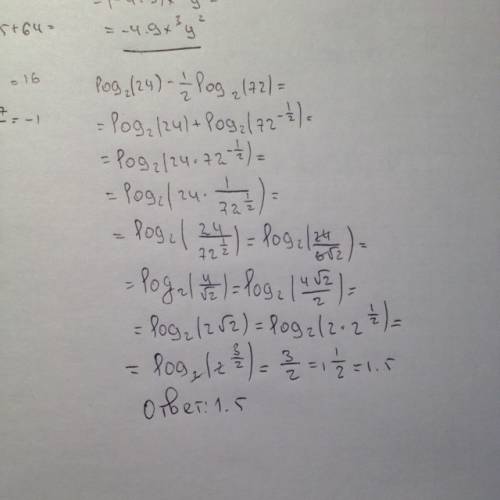 = -4.9x³y²
5+64=
=16
= -1
log₂(24) - 1/2 log₂(72) =
= log₂(24) + log₂(72^(-1/2)) =
= log₂(24 · 72^(-1/2)) =
= log₂(24 · 1/72^(1/2)) =
= log₂(24/72^(1/2)) = log₂(24/6√2) =
= log₂(4/√2) = log₂(4√2/2) =
= log₂(2√2) = log₂(2 · 2^(1/2)) =
= log₂(2^(3/2)) = 3/2 = 1 1/2 = 1.5
Ответ: 1.5